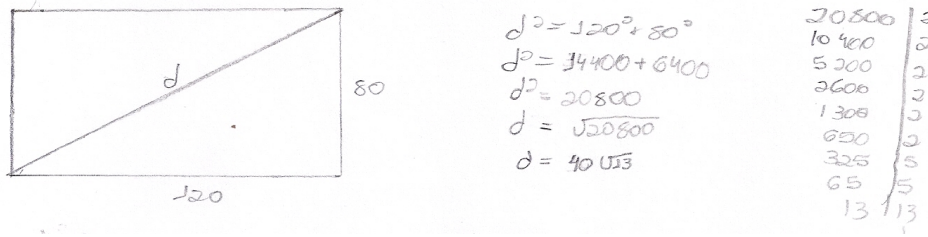 d
80
120
d² = 120² + 80²
d² = 14400 + 6400
d² = 20800
d = √20800
d = 40√13
20800 | 2
10400 | 2
5200 | 2
2600 | 2
1300 | 2
650 | 2
325 | 5
65 | 5
13 | 13
1